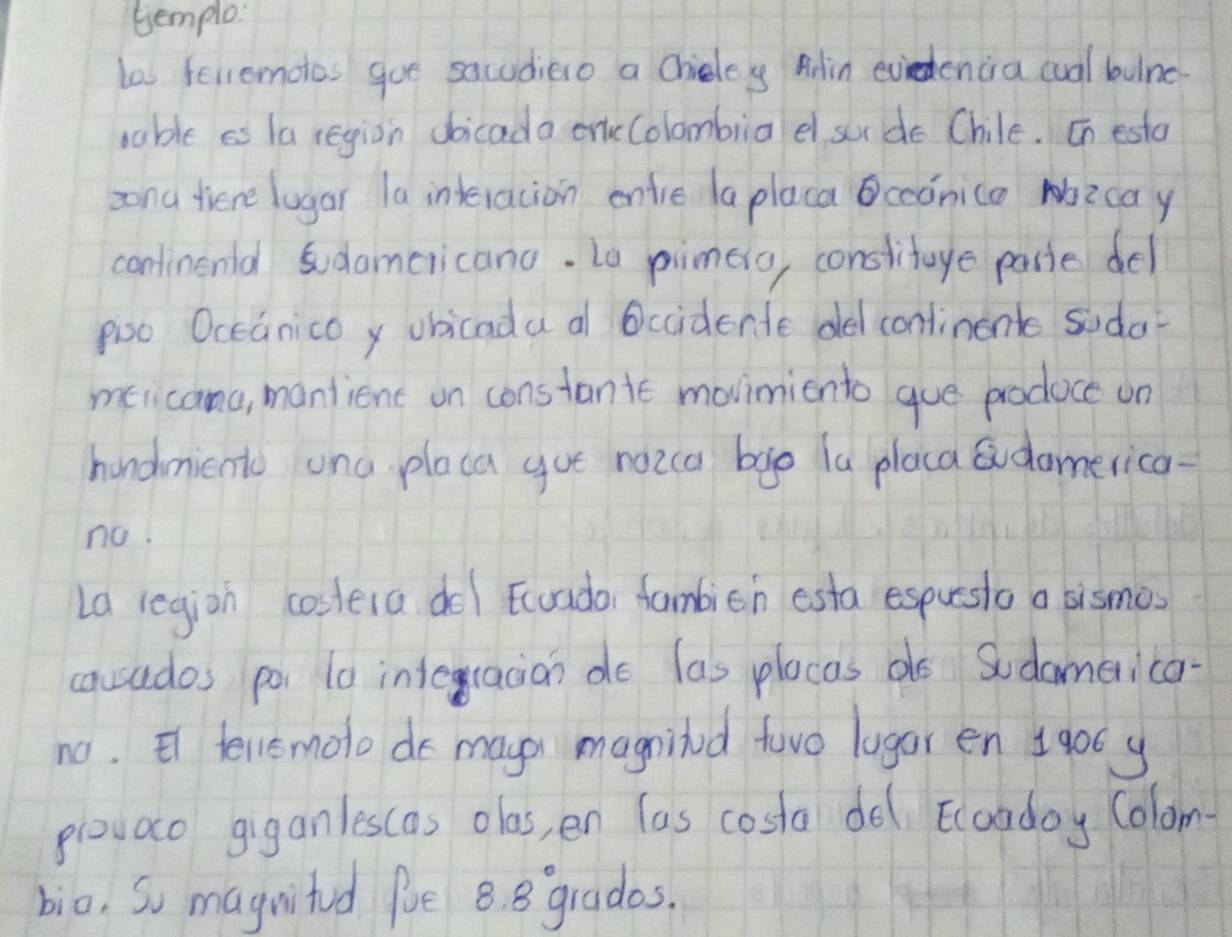 Ejemplo:
los terremotos que sacudiero a Chiele y Aitin evidencia cual bulne-
rable es la region ubicada entre Colombiia el sur de Chile. En esta
zona tiene lugar la interación entre la placa Oceánica Nazca y
continental Sudamericana. La primera, constituye parte del
piso Oceánico y ubicada al Occidente del continente suda-
mericana, mantiene un constante movimiento que produce un
hundimiento una placa que nazca bajo la placa Sudamerica-
na.
La región costera del Ecuador tambien esta espuesto a sismos
causados por la integración de las placas de Sudamerica-
na. El terremoto de mayor magnitud tuvo lugar en 1906 y
provoco gigantescas olas, en las costa del Ecuado y Colom-
bia. Su magnitud fue 8.8° grados.